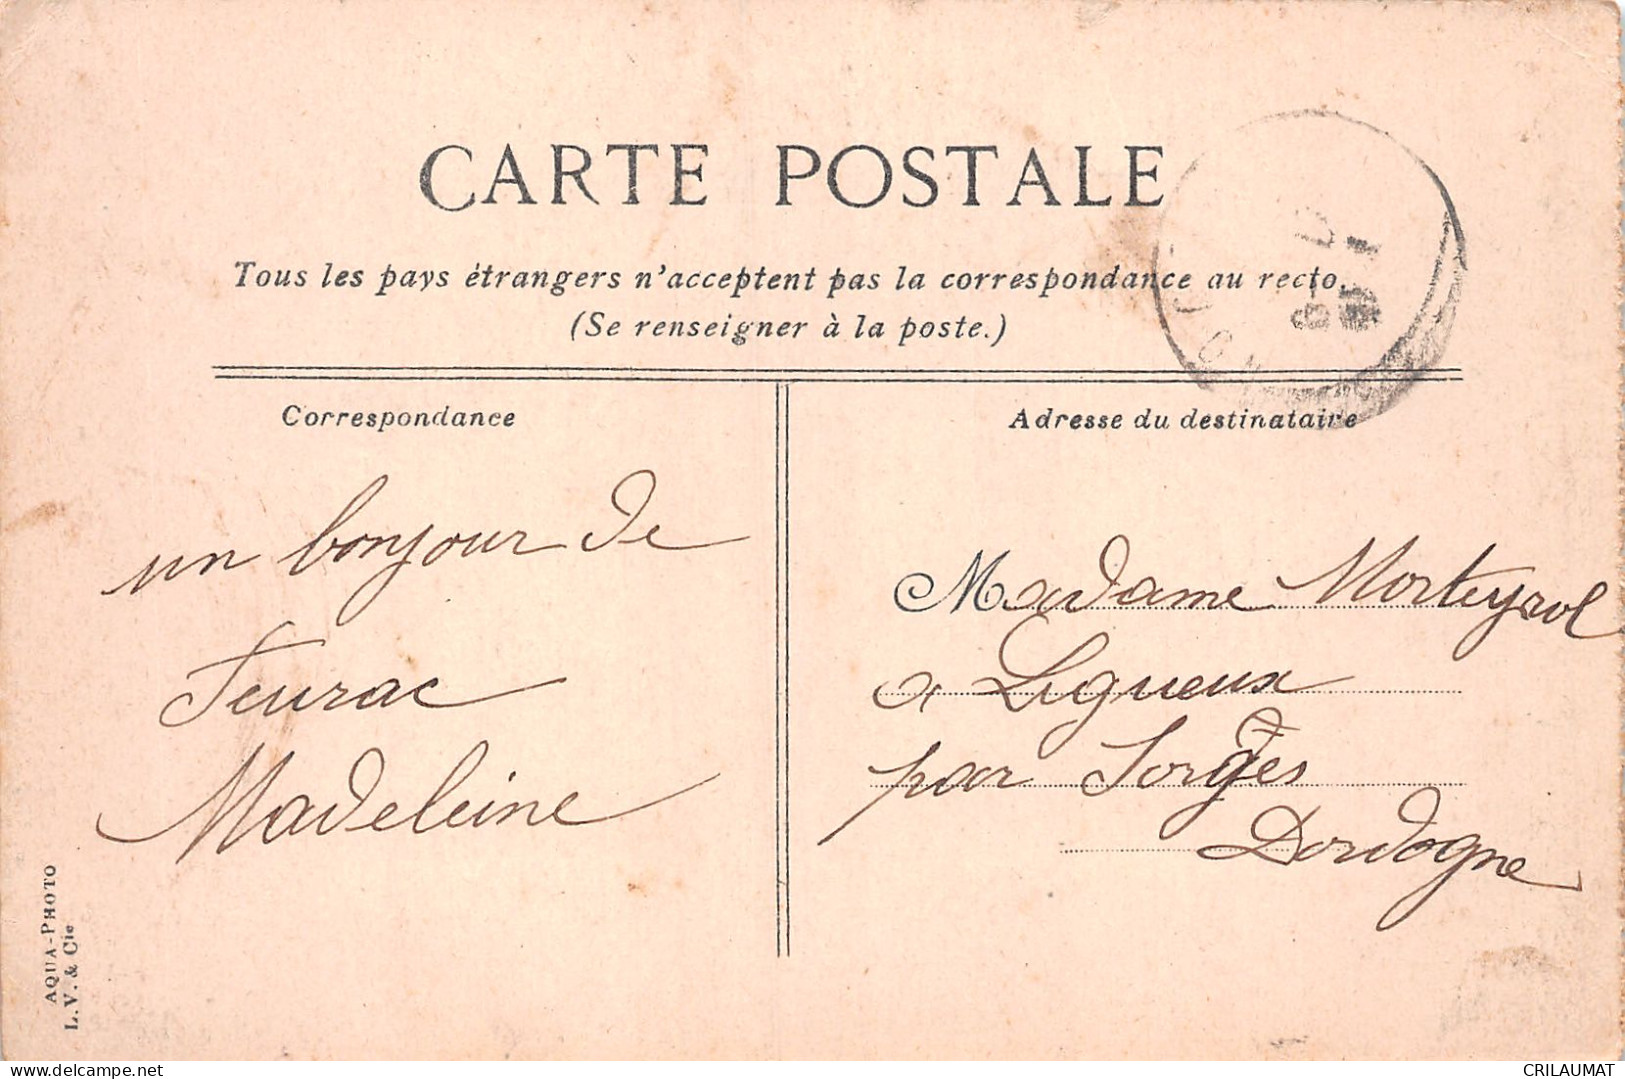 CARTE POSTALE
Tous les pays étrangers n'acceptent pas la correspondance au recto.
(Se renseigner à la poste.)
Correspondance
Adresse du destinataire
un bonjour de
Feurac
Madeleine
Madame Morteyrol
a Ligueux
par Sorges
Dordogne
AQUA-PHOTO
L.V. & Cie
CRILAUMAT